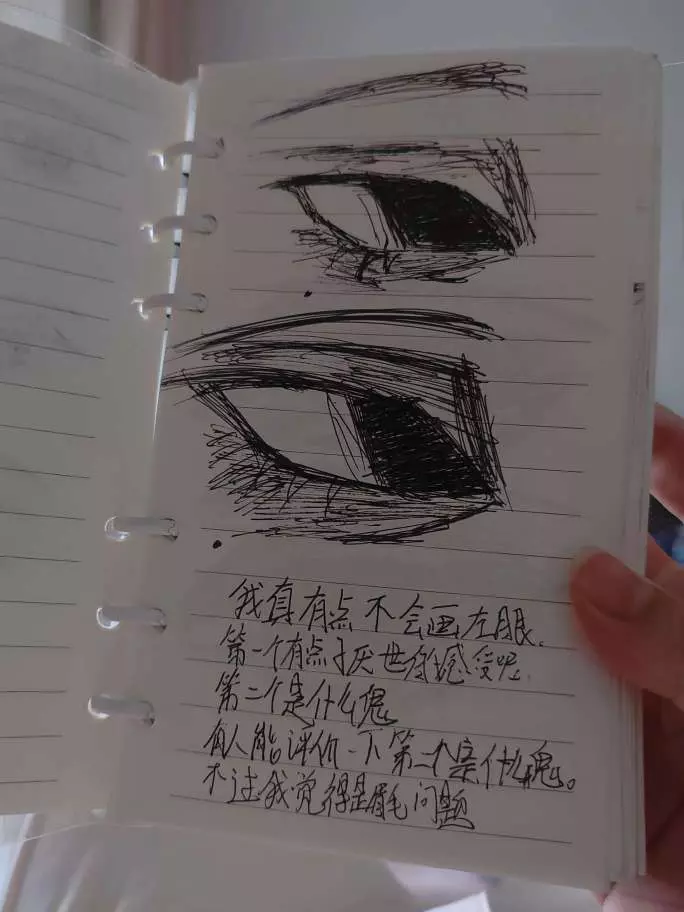 我真有点不会画左眼、
第一个有点子厌世的感受呢、
第二个是什么鬼
有人能评价一下第二个是什么鬼。
不过我觉得是眉毛问题